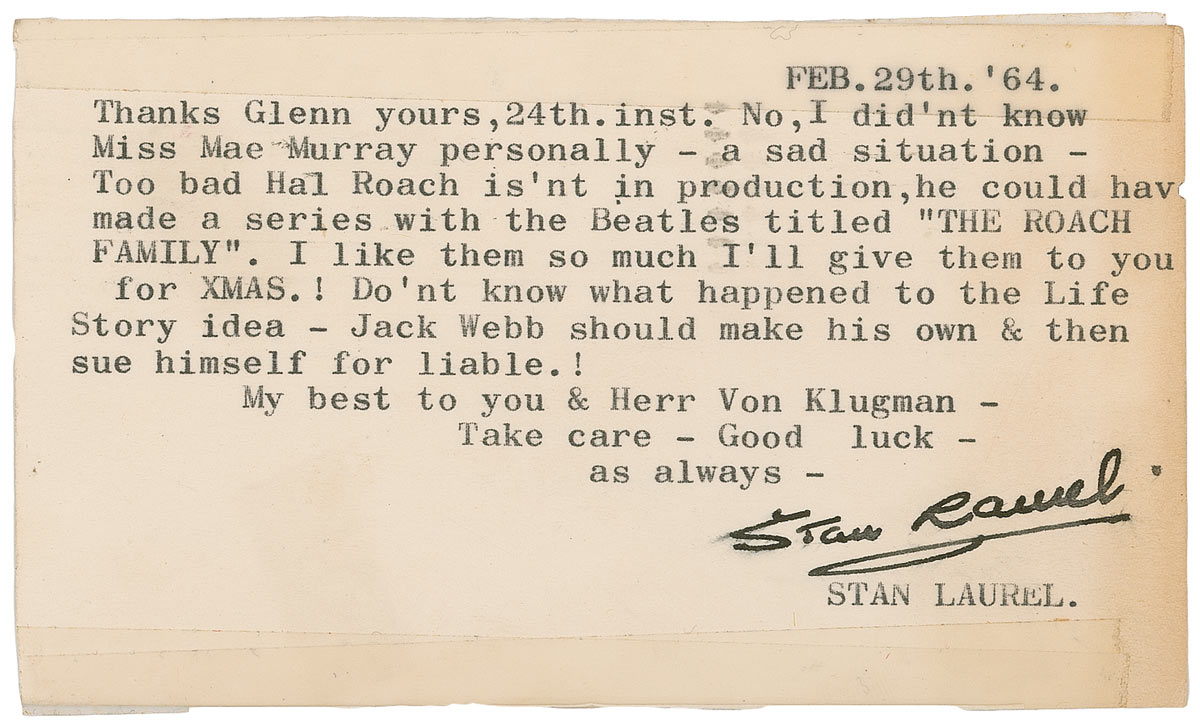 FEB.29th.'64.
Thanks Glenn yours,24th.inst. No,I did'nt know
Miss Mae Murray personally - a sad situation -
Too bad Hal Roach is'nt in production,he could hav
made a series with the Beatles titled "THE ROACH
FAMILY". I like them so much I'll give them to you
for XMAS.! Do'nt know what happened to the Life
Story idea - Jack Webb should make his own & then
sue himself for liable.!
My best to you & Herr Von Klugman -
Take care - Good luck -
as always -
Stan Laurel
STAN LAUREL.